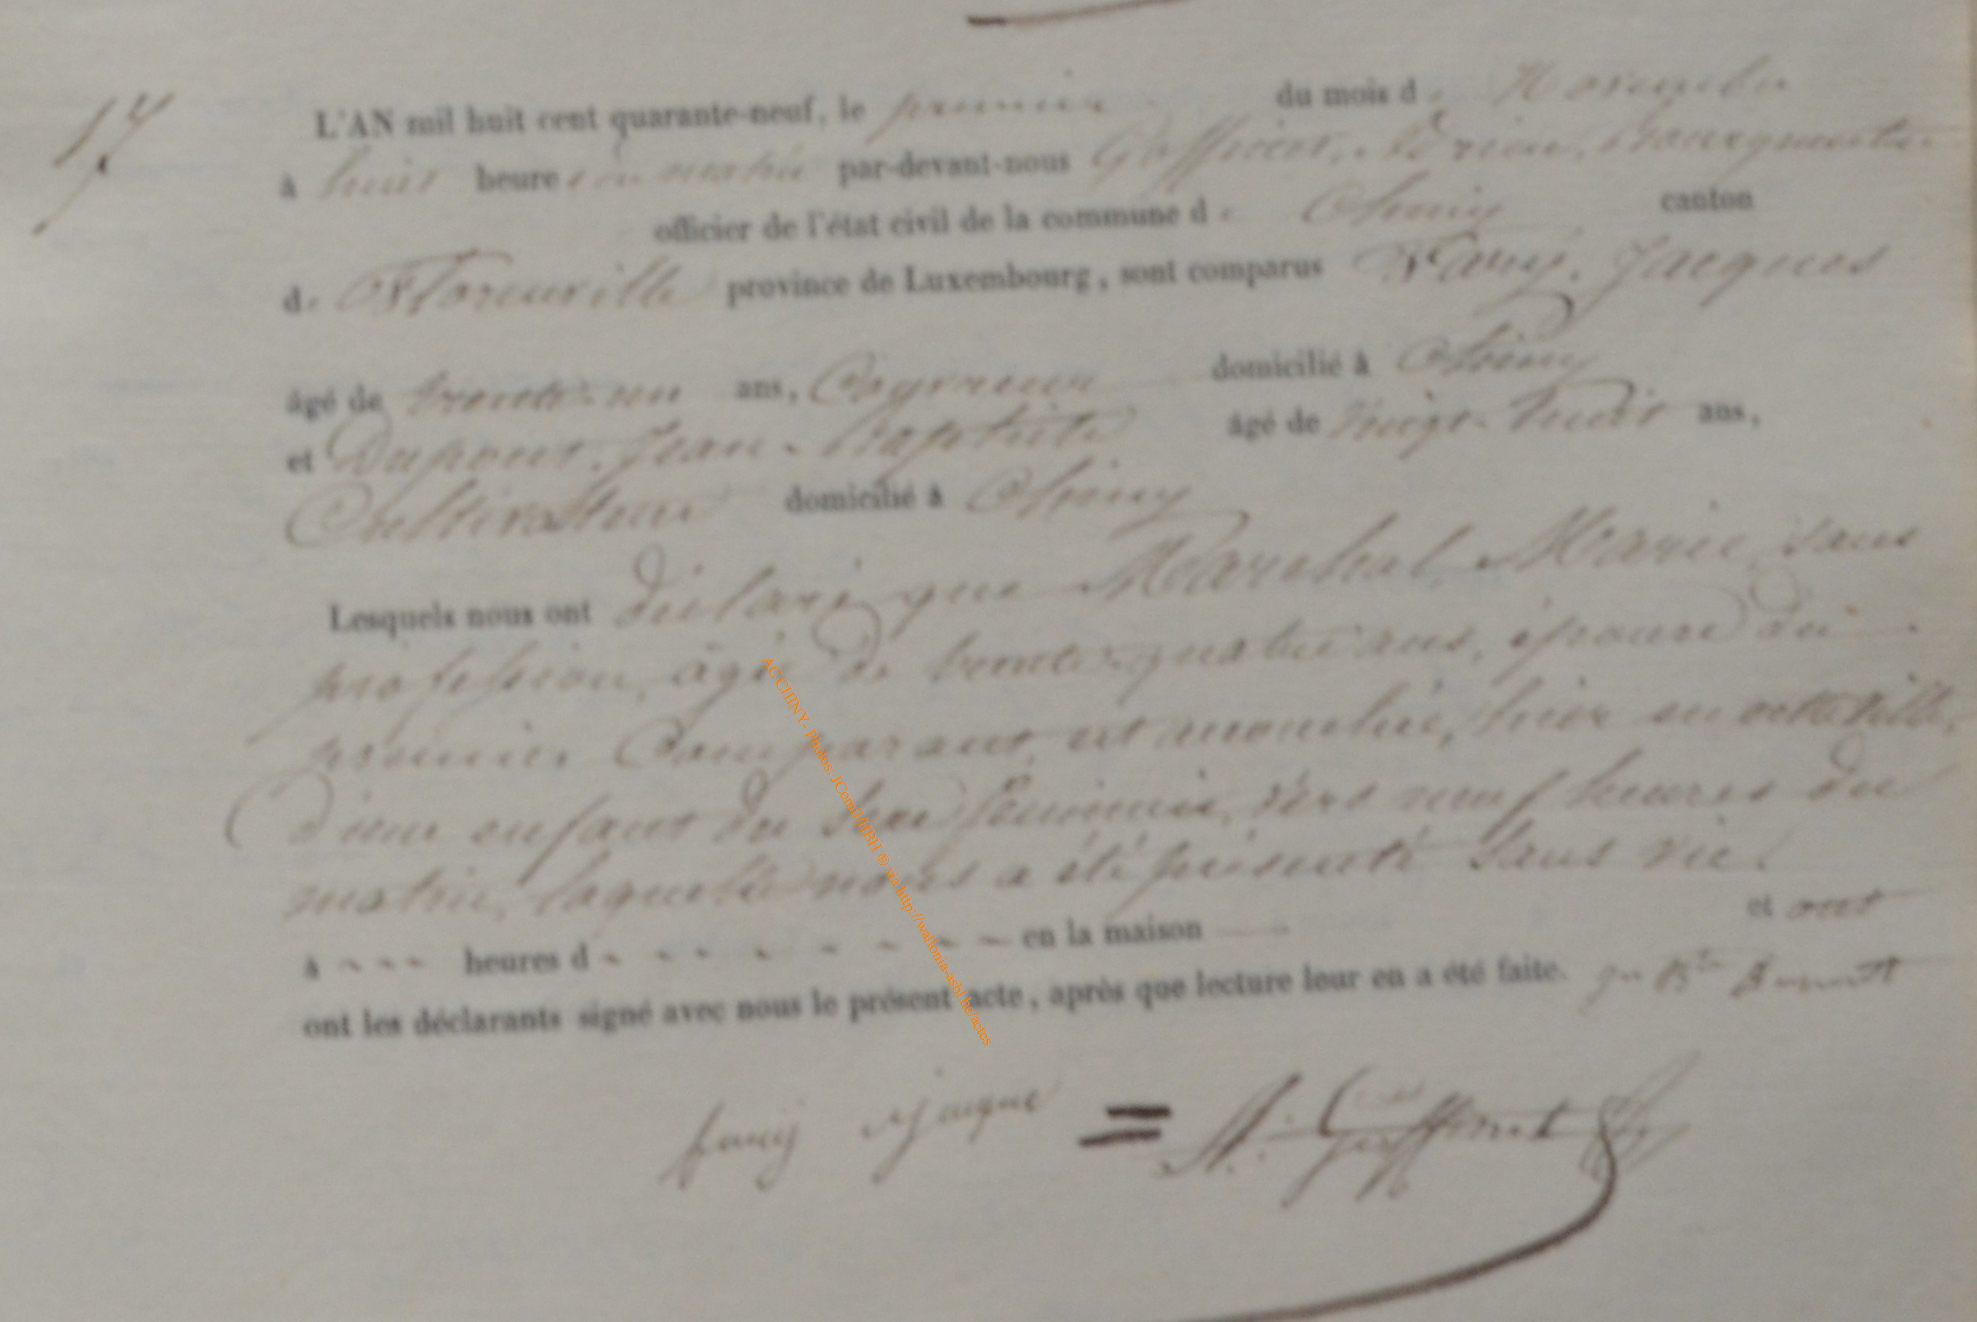 17
L'AN mil huit cent quarante-neuf, le premier du mois de Novembre
à huit heures du matin par-devant-nous Goffinet, Adrien, Bourgmestre
officier de l'état civil de la commune de Chiny canton
de Florenville province de Luxembourg, sont comparus Fauÿ, Jacques
âgé de trente-un ans, domicilié à Chiny
et Dupont, Jean-Baptiste âgé de vingt-huit ans,
Cultivateur domicilié à Chiny
Lesquels nous ont déclaré que Maréchal, Marie, sans
profession, âgée de trente-quatre ans, épouse du
premier Comparant, est accouchée, hier en cette ville,
d'un enfant du sexe féminin, vers neuf heures du
matin, laquelle nous a été présenté sans vie.
à heures d en la maison et ont
ont les déclarants signé avec nous le présent acte, après que lecture leur en a été faite.
fauÿ Jacque = A. Goffinet
ACCHINY- Photos: JComblMBH © via http://wallonia-asbl.be/actes